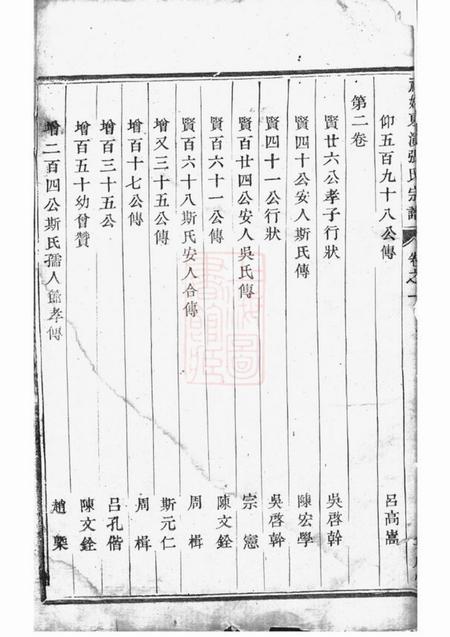 張氏宗譜 卷之一
仰五百九十八公傳 呂高嵩
第二卷
賢廿六公孝子行狀 吳啓幹
賢四十公安人斯氏傳 陳宏學
賢四十一公行狀 吳啓幹
賢百廿四公安人吳氏傳 宗憲
賢百六十一公傳 陳文銓
賢百六十八斯氏安人合傳 周楫
增又三十五公傳 斯元仁
增百十七公傳 周楫
增百三十五公 呂孔偕
增百五十幼曾贊 陳文銓
增二百四公斯氏孺人節孝傳 趙槼